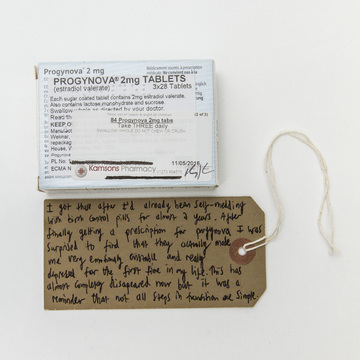 Progynova® 2 mg
PROGYNOVA® 2mg TABLETS
(estradiol valerate)
3x28 Tablets
Each sugar coated tablet contains 2mg estradiol valerate.
Also contains lactose monohydrate and sucrose.
Swallow whole as directed by your doctor.
Read th
KEEP O
84 Progynova 2mg tabs
Take THREE daily
Manufact
PL No:
Kamsons Pharmacy
11/05/2016
I got these after I'd already been self-medding
with birth control pills for almost 2 years. After
finally getting a prescription for progynova I was
surprised to find that they actually made
me very emotionally unstable and really
depressed for the first time in my life. This has
almost completely disappeared now but it was a
reminder that not all steps in transition are simple.